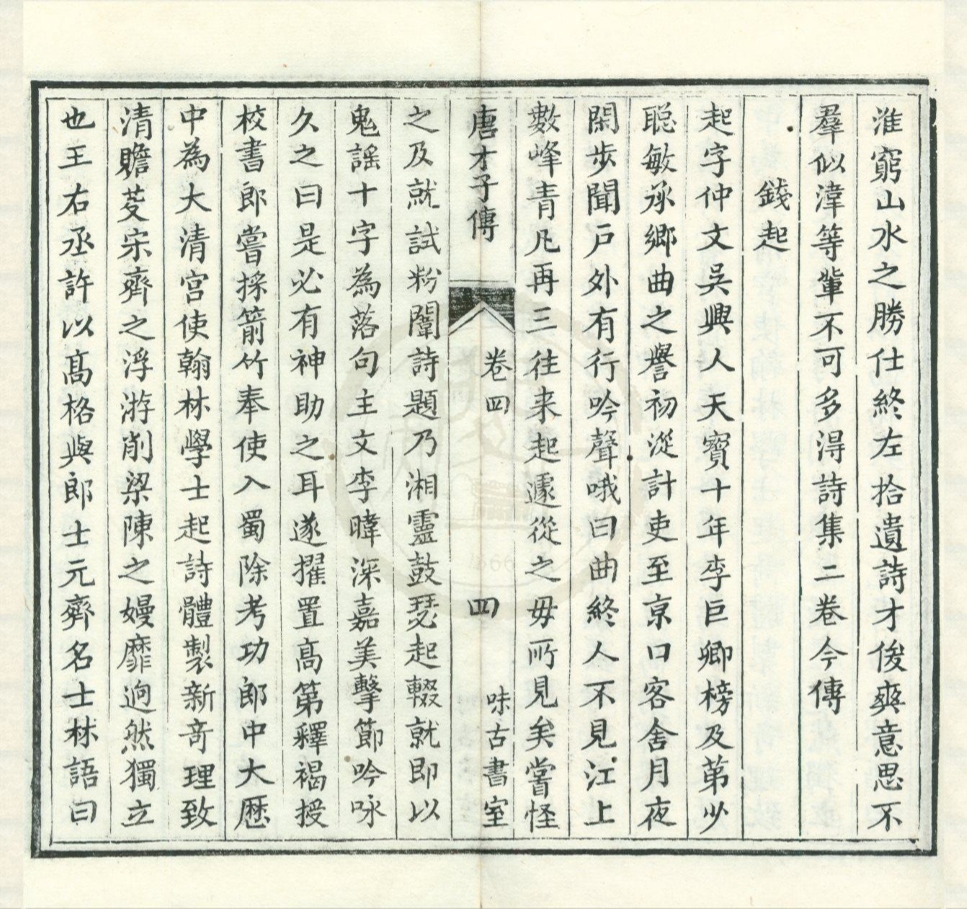 淮窮山水之勝仕終左拾遺詩才俊爽意思不
羣似渾等輩不可多得詩集二卷今傳
錢起
起字仲文吳興人天寶十年李巨卿榜及第少
聡敏承鄉曲之譽初從計吏至京口客舍月夜
閑步聞戶外有行吟聲哦曰曲終人不見江上
數峰青凡再三往来起遽從之毋所見矣嘗怪
唐才子傳 卷四 四 味古書室
之及就試粉闈詩題乃湘靈鼓瑟起輟就即以
鬼謠十字為落句主文李暐深嘉美擊節吟咏
久之曰是必有神助之耳遂擢置高第釋褐授
校書郎嘗採箭竹奉使入蜀除考功郎中大歷
中為大清宮使翰林學士起詩體製新竒理致
清贍芟宋齊之浮游削梁陳之嫚靡迥然獨立
也王右丞許以高格與郎士元齊名士林語曰